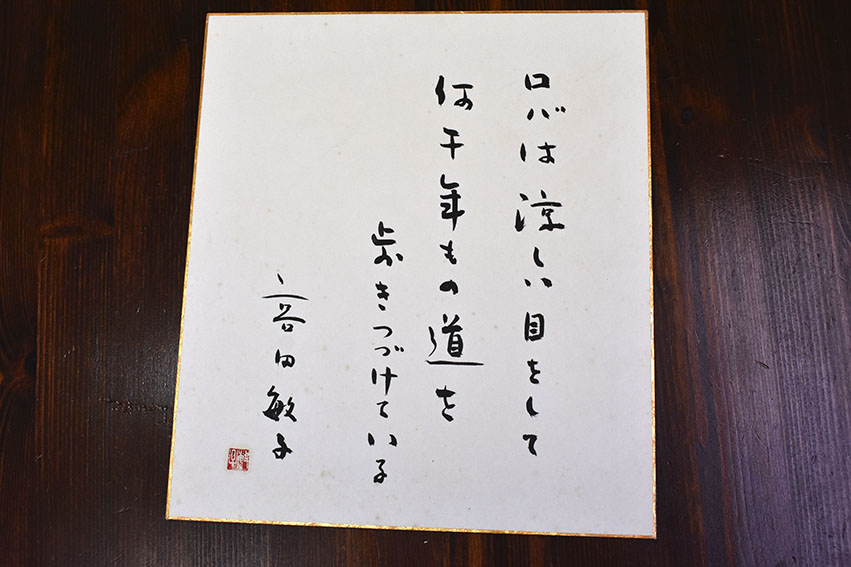 ロバは涼しい目をして
何千年もの道を
歩きつづけている
高田敏子